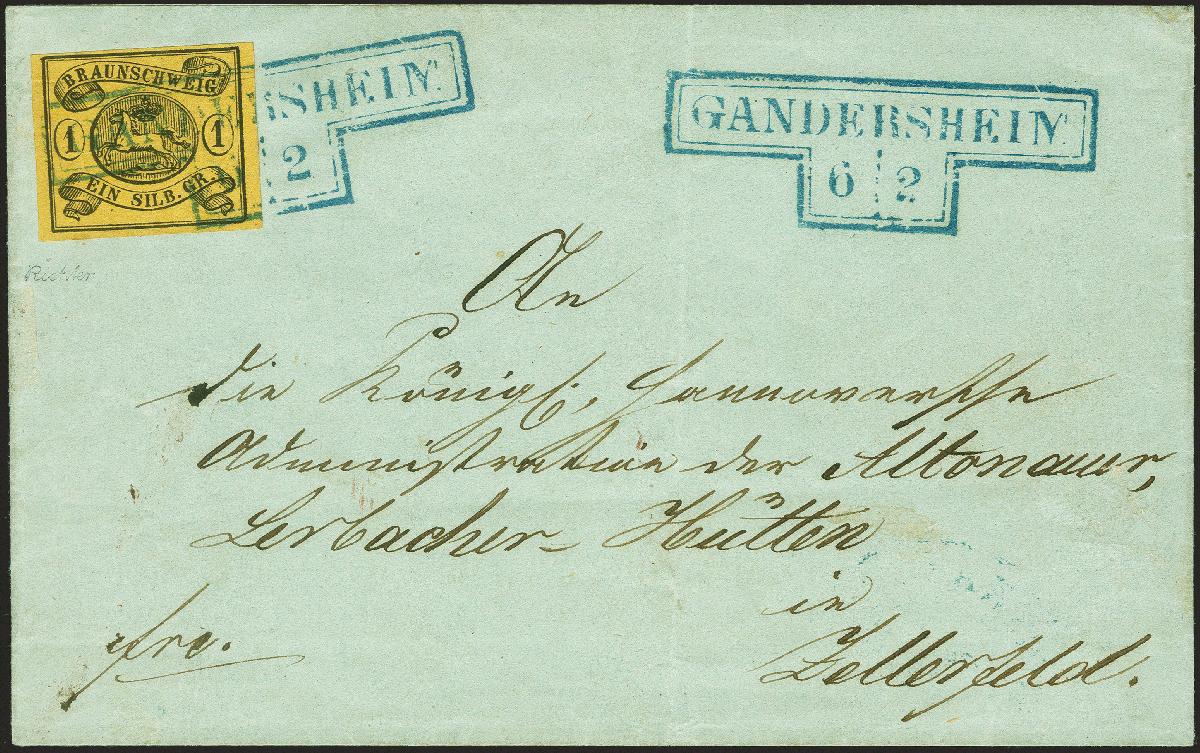 BRAUNSCHWEIG
1 1
EIN SILB. GR.
RSHEIM
2
GANDERSHEIM
6 2
Richter
An
die Königl. Hannoversche
Administration der Altonauer,
Lerbacher-Hütten
in
Zellerfeld.
fro.